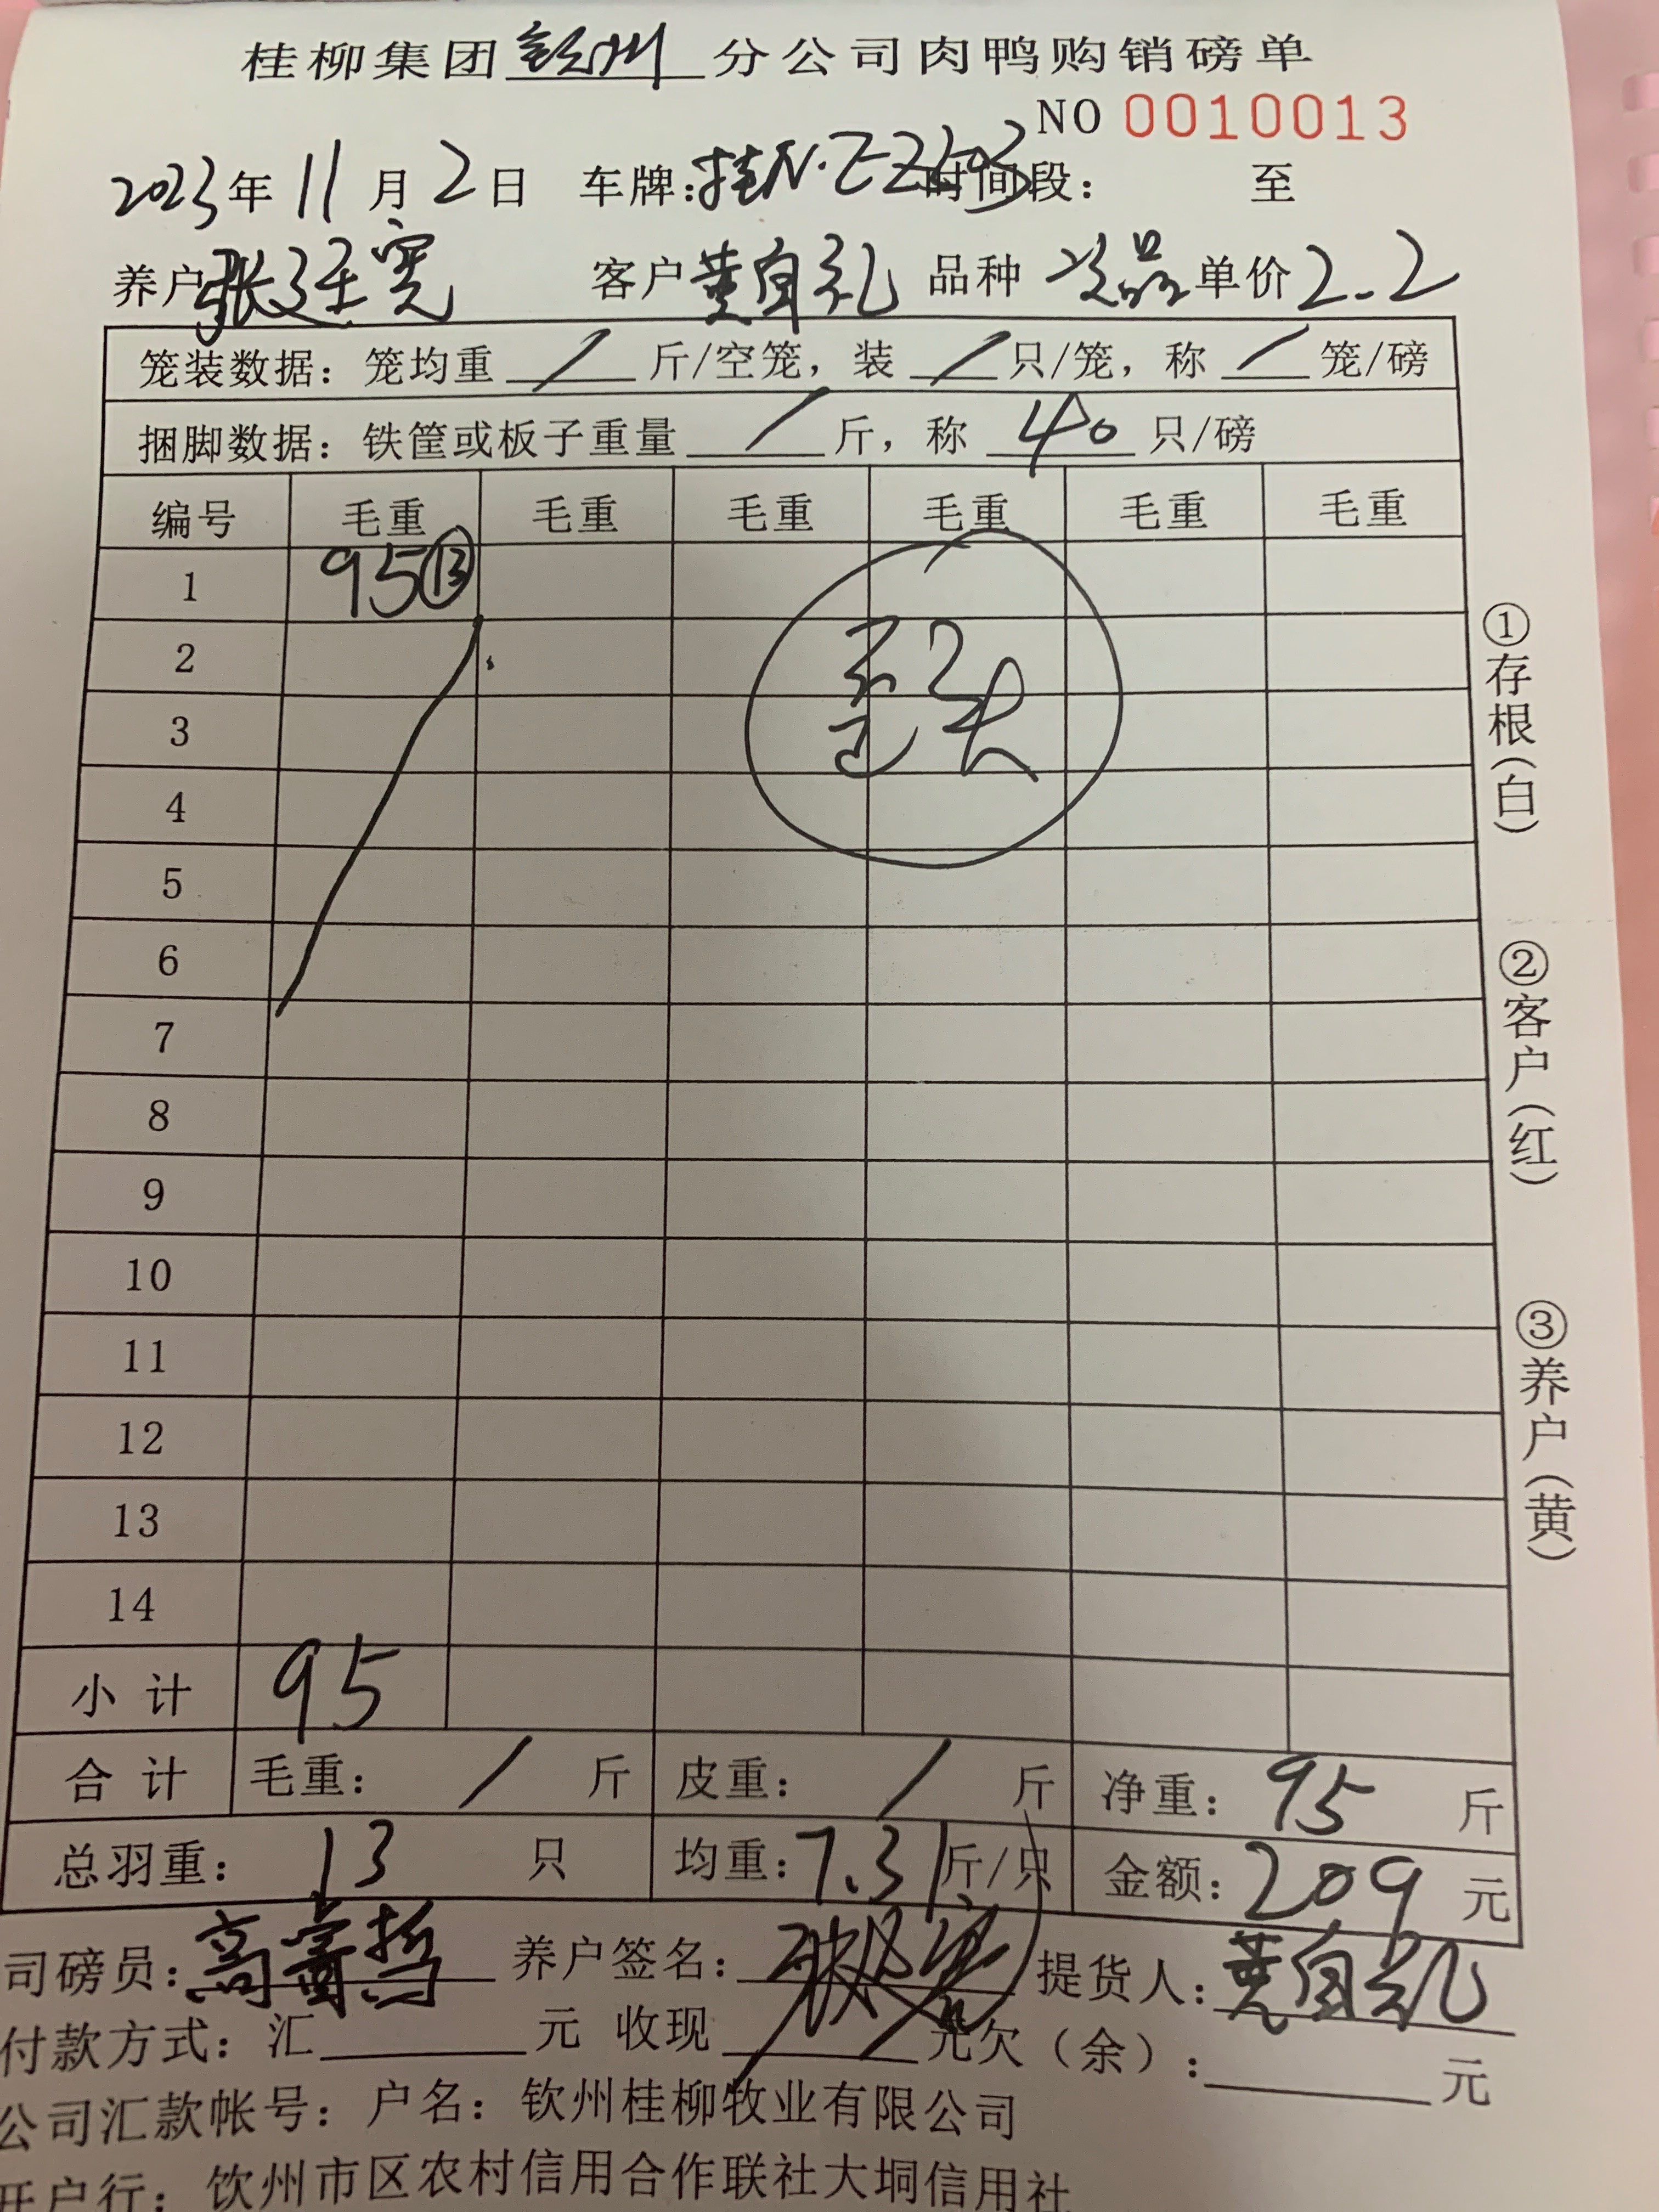 桂柳集团钦州分公司肉鸭购销磅单
NO 0010013
2023年11月2日 车牌:桂N· 时间段: 至
养户 张廷宽 客户 黄自礼 品种 次品 单价 2.2
笼装数据:笼均重 / 斤/空笼,装 / 只/笼,称 / 笼/磅
捆脚数据:铁筐或板子重量 / 斤,称 40 只/磅
编号 毛重 毛重 毛重 毛重 毛重 毛重
1 95⑬
2
3
4
5
6
7
8
9
10
11
12
13
14
小计 95
合计 毛重: / 斤 皮重: / 斤 净重: 95 斤
总羽重: 13 只 均重: 7.31 斤/只 金额: 209 元
司磅员: 高 哲 养户签名: 张廷宽 提货人: 黄自礼
付款方式:汇 元 收现 元欠(余): 元
公司汇款帐号:户名:钦州桂柳牧业有限公司
开户行:钦州市区农村信用合作联社大垌信用社
①存根(白)
②客户(红)
③养户(黄)